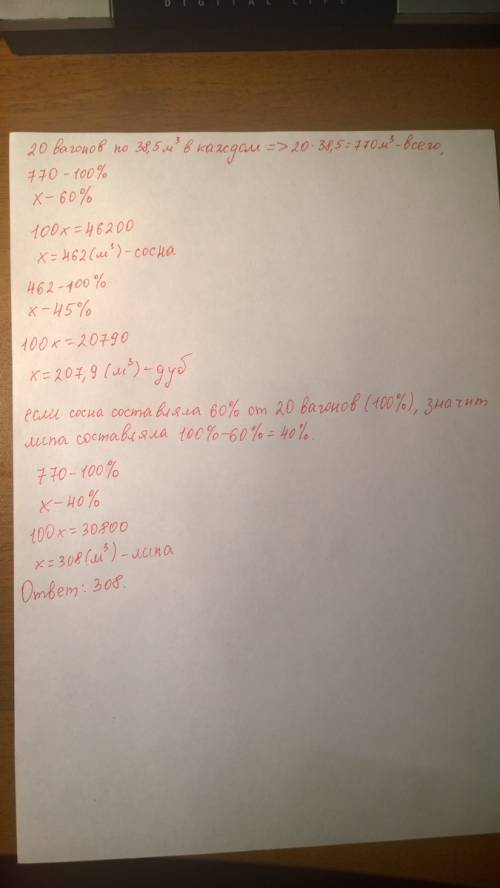 DIGITAL LIFE
20 вагонов по 38,5 м³ в каждом => 20·38,5=770м³-всего,
770-100%
x-60%
100x=46200
x=462(м³)-сосна
462-100%
x-45%
100x=20790
x=207,9(м³)-дуб
если сосна составляла 60% от 20 вагонов (100%), значит
липа составляла 100%-60%=40%.
770-100%
x-40%
100x=30800
x=308(м³)-липа
Ответ: 308.